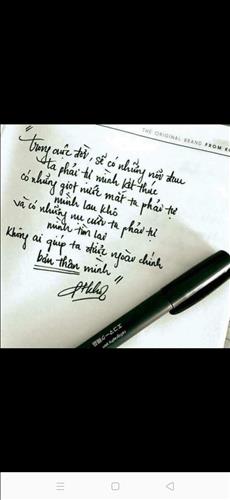 THE ORIGINAL BRAND FROM
"
trong cuộc đời, sẽ có những nỗi đau
ta phải tự mình kết thúc
có những giọt nước mắt ta phải tự
mình lau khô
và có những nụ cười ta phải tự
mình tìm lại
không ai giúp ta được ngoài chính
bản thân mình "